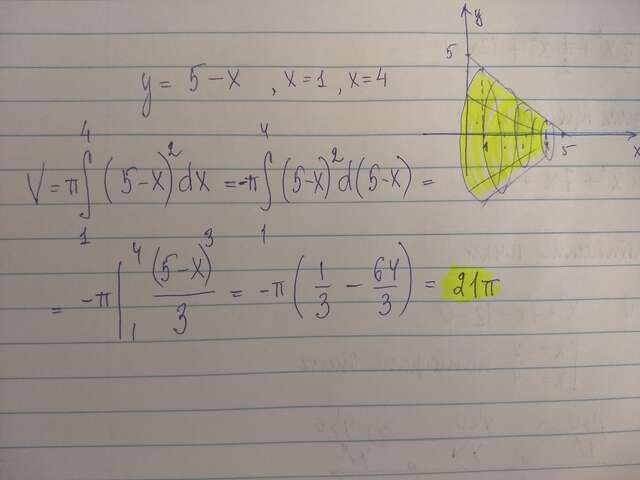 y = 5 - x , x = 1 , x = 4
V = π∫₁⁴ (5-x)² dx = -π∫₁⁴ (5-x)² d(5-x) =
= -π |₁⁴ (5-x)³/3 = -π(1/3 - 64/3) = 21π
y
5
1
5
x